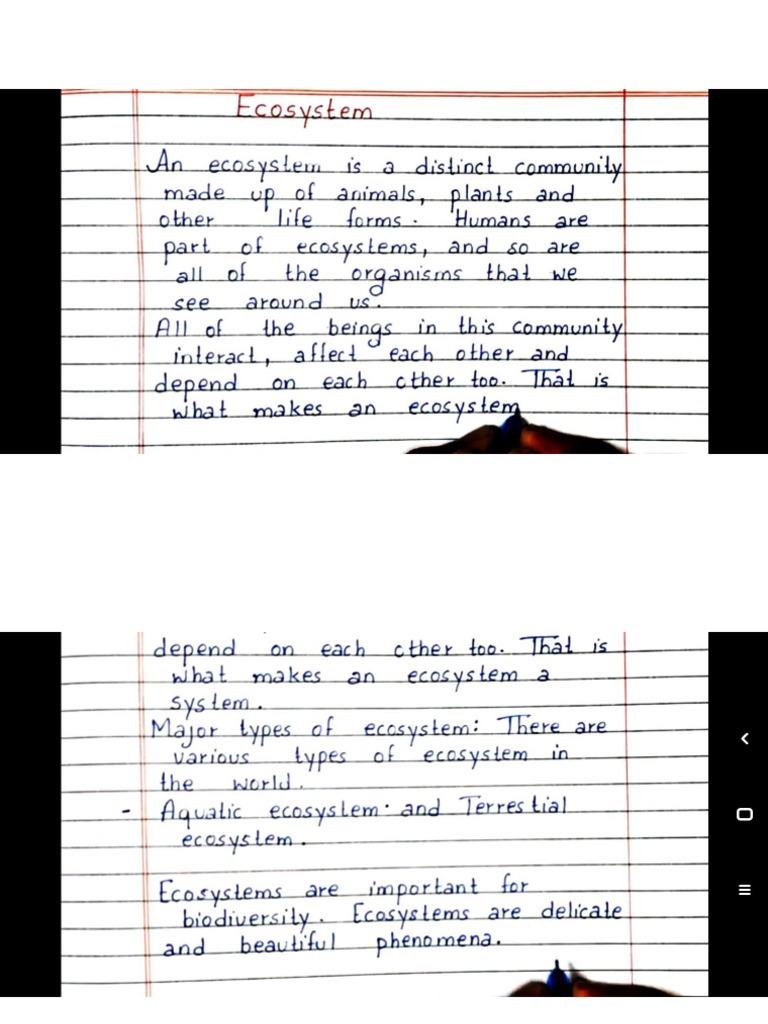 Ecosystem
An ecosystem is a distinct community
made up of animals, plants and
other life forms. Humans are
part of ecosystems, and so are
all of the organisms that we
see around us.
All of the beings in this community
interact, affect each other and
depend on each cther too. That is
what makes an ecosystem
depend on each cther too. That is
what makes an ecosystem a
system.
Major types of ecosystem: There are
various types of ecosystem in
the world.
- Aquatic ecosystem. and Terrestial
ecosystem.
Ecosystems are important for
biodiversity. Ecosystems are delicate
and beautiful phenomena.